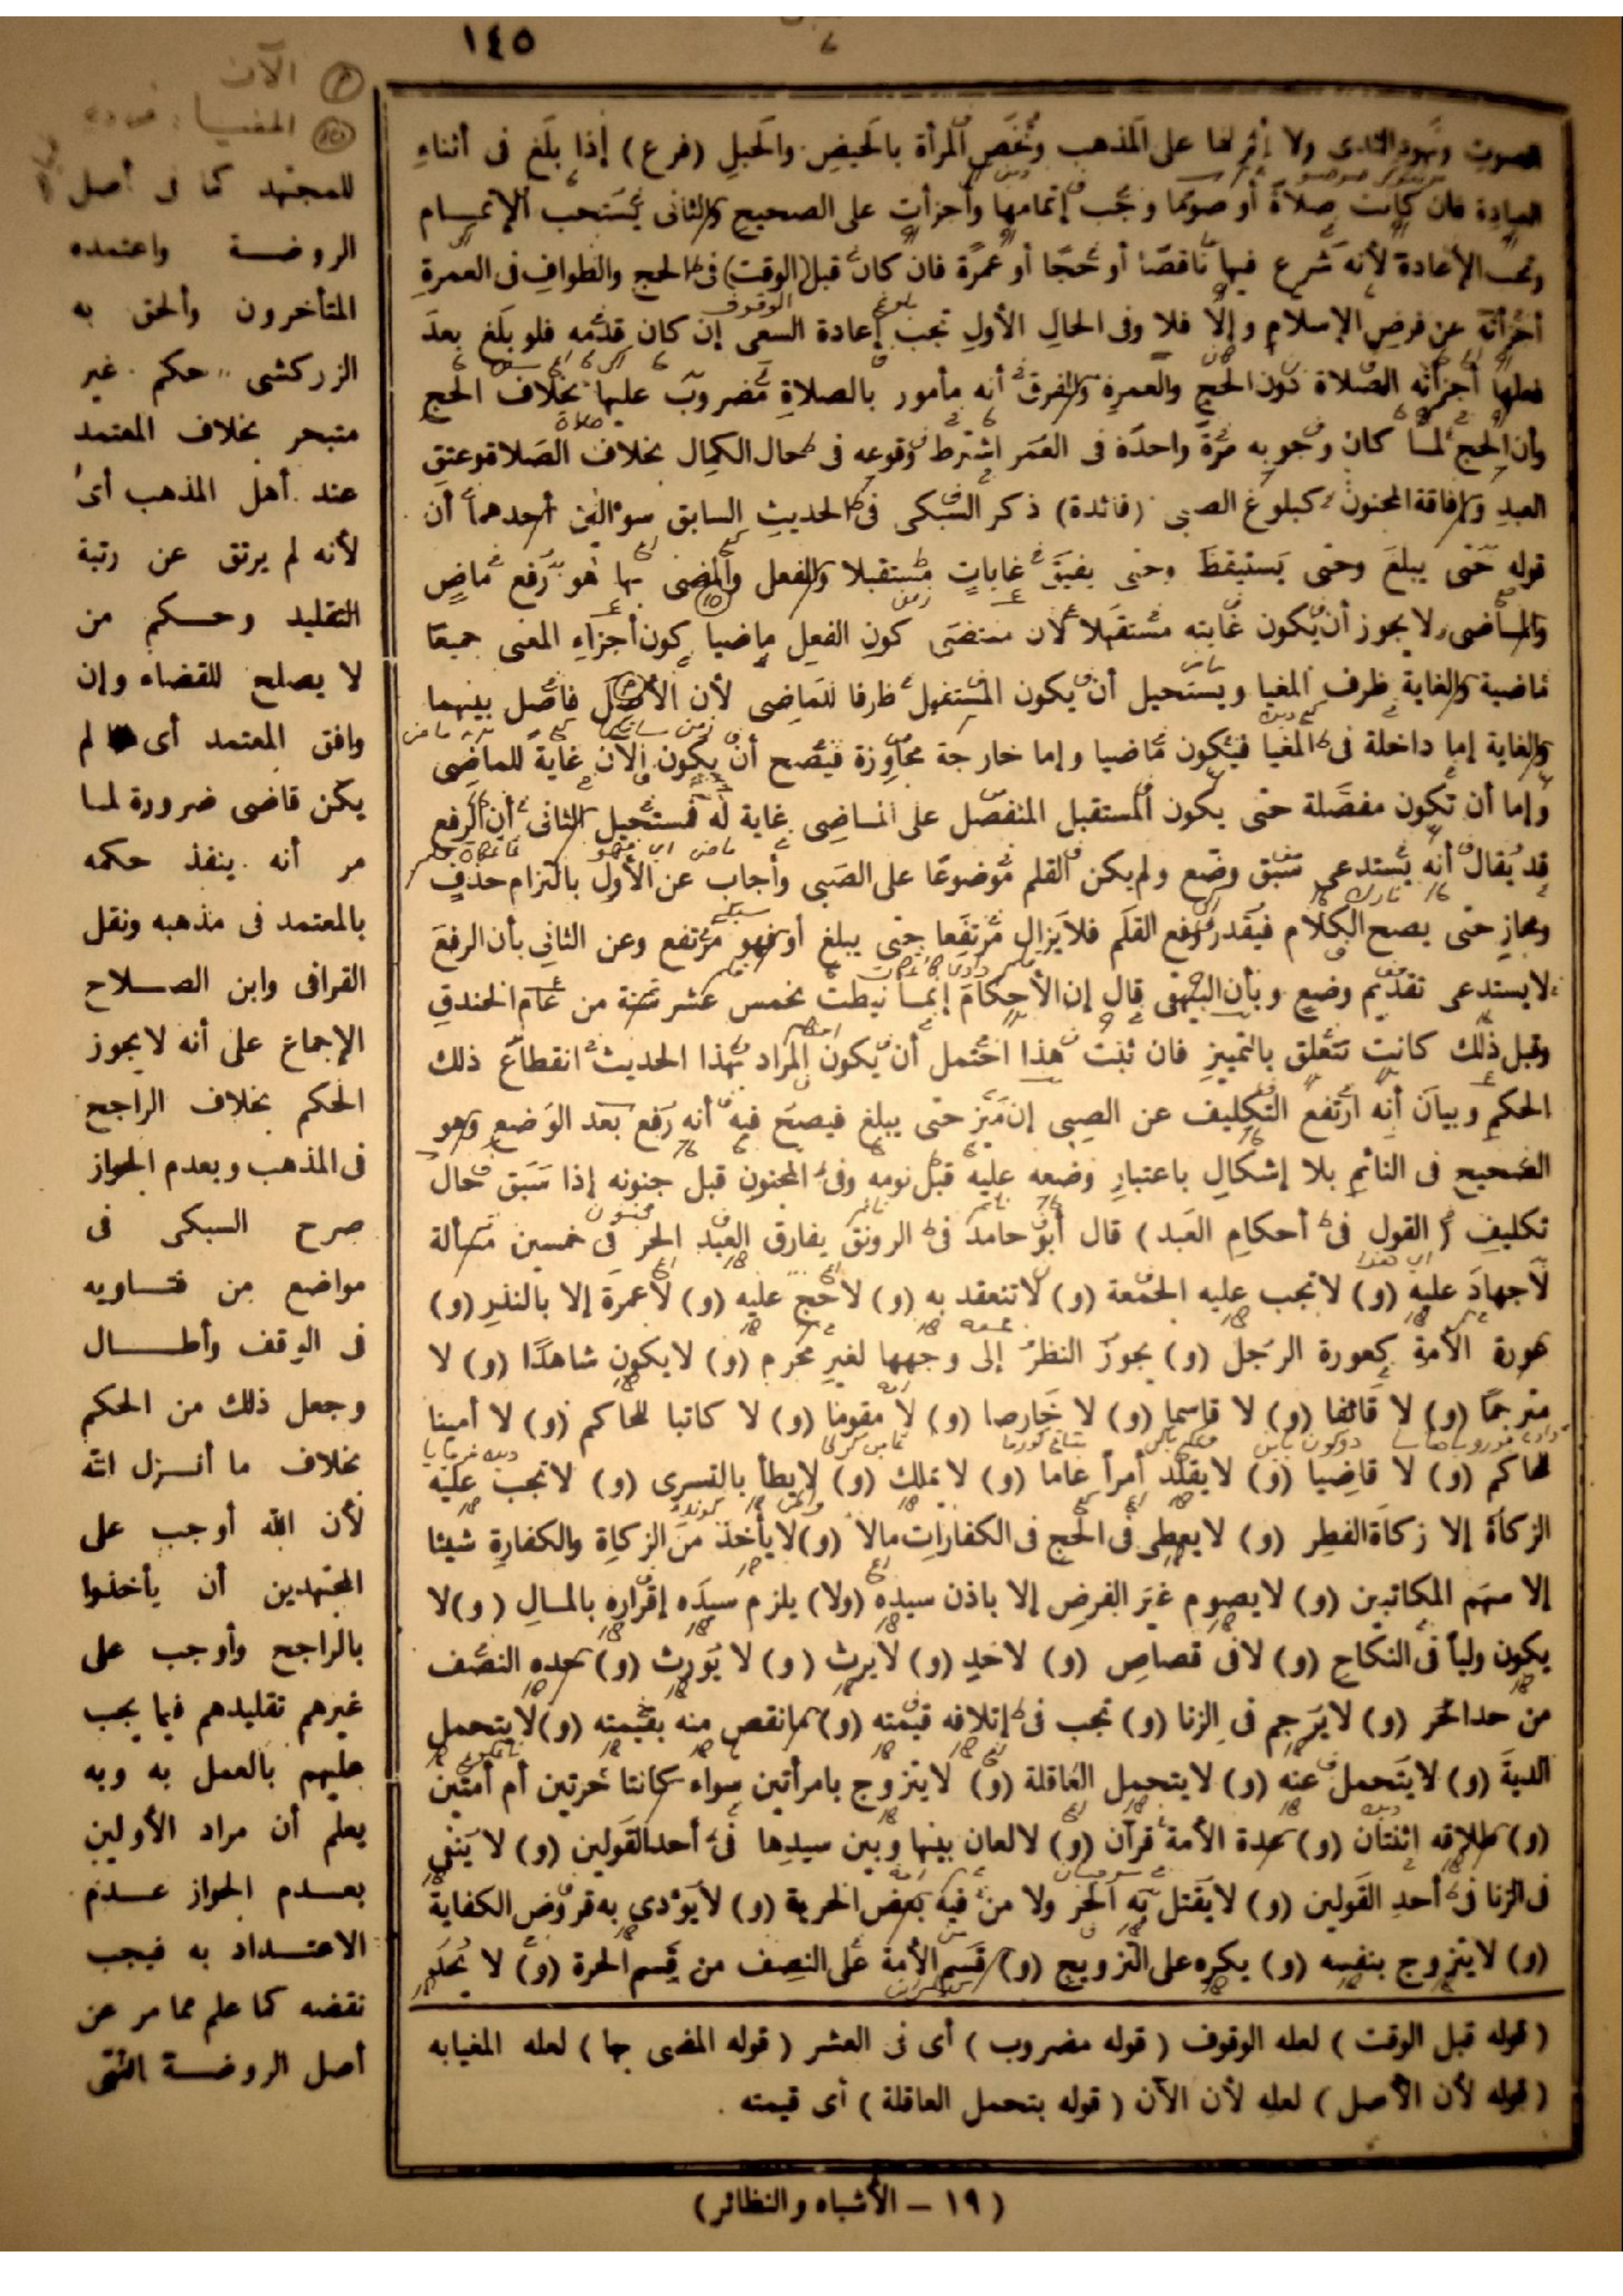 ١٤٥
الصوت ونهود الثدى ولا أثر لها على المذهب وتختص المرأة بالحيض والحبل (فرع) إذا بلغ فى أثناء
العبادة فان كانت صلاة أو صوما وجب إتمامها وأجزأت على الصحيح والثانى يستحب الإتمام
وتجب الإعادة لأنه شرع فيها ناقصا أو حجا أو عمرة فان كان قبل (الوقت) فى الحج والطواف فى العمرة
أجزأته عن فرض الإسلام وإلا فلا وفى الحال الأول تجب إعادة السعى إن كان قدمه فلو بلغ بعد
فعلها أجزأته الصلاة دون الحج والعمرة والفرق أنه مأمور بالصلاة مضروب عليها بخلاف الحج
وأن الحج لما كان وجوبه مرة واحدة فى العمر اشترط وقوعه فى حال الكمال بخلاف الصلاة وعتق
العبد وإفاقة المجنون كبلوغ الصبى (فائدة) ذكر السبكى فى الحديث السابق سؤالين أحدهما أن
قوله حتى يبلغ وحتى يستيقظ وحتى يفيق غايات مستقبلا والفعل والمضى بها هو رفع ماض
والماضى لا يجوز أن يكون غايته مستقبلا لأن مقتضى كون الفعل ماضيا كون أجزاء المعنى جميعا
ماضية والغاية ظرف المغيا ويستحيل أن يكون المستقبل ظرفا للماضى لأن الأصل فاصل بينهما
والغاية إما داخلة فى المغيا فيكون ماضيا وإما خارجة مجاوزة فيصح أن يكون الآن غاية للماضى
وإما أن تكون مفصلة حتى يكون المستقبل المنفصل على الماضى غاية له فمستحيل الثانى أن الرفع
قد يقال أنه يستدعى سبق وضع ولم يكن القلم موضوعا على الصبى وأجاب عن الأول بالتزام حذف
ومجاز حتى يصح الكلام فيقدر رفع القلم فلا يزال مرتفعا حتى يبلغ أو فهو مرتفع وعن الثانى بأن الرفع
لا يستدعى تقديم وضع وبأن البيهقى قال إن الأحكام إنما نيطت بخمس عشر سنة من عام الخندق
وقبل ذلك كانت تتعلق بالتمييز فان ثبت هذا احتمل أن يكون المراد بهذا الحديث انقطاع ذلك
الحكم وبيان أنه ارتفع التكليف عن الصبى إن ميز حتى يبلغ فيصح فيه أنه رفع بعد الوضع وهو
الصحيح فى النائم بلا إشكال باعتبار وضعه عليه قبل نومه وفى المجنون قبل جنونه إذا سبق حال
تكليف ( القول فى أحكام العبد ) قال أبو حامد فى الرونق يفارق العبد الحر فى خمسين مسألة
لا جهاد عليه (و) لا تجب عليه الجمعة (و) لا تنعقد به (و) لا حج عليه (و) لا عمرة إلا بالنذر (و)
عورة الأمة كعورة الرجل (و) يجوز النظر إلى وجهها لغير محرم (و) لا يكون شاهدا (و) لا
مترجما (و) لا قائفا (و) لا قاسما (و) لا خارصا (و) لا مقوما (و) لا كاتبا للحاكم (و) لا أمينا
لحاكم (و) لا قاضيا (و) لا يقلد أمرا عاما (و) لا يملك (و) لا يطأ بالتسرى (و) لا تجب عليه
الزكاة إلا زكاة الفطر (و) لا يعطى فى الحج فى الكفارات مالا (و) لا يأخذ من الزكاة والكفارة شيئا
إلا سهم المكاتبين (و) لا يصوم غير الفرض إلا باذن سيده (ولا) يلزم سيده إقراره بالمال (و) لا
يكون وليا فى النكاح (و) لا فى قصاص (و) لا حد (و) لا يرث (و) لا يورث (و) حده النصف
من حد الحر (و) لا يرجم فى الزنا (و) تجب فى إتلافه قيمته (و) ما نقص منه بقيمته (و) لا يتحمل
الدية (و) لا يتحمل عنه (و) لا يتحمل العاقلة (و) لا يتزوج بامرأتين سواء كانتا حرتين أم أمتين
(و) طلاقه اثنتان (و) عدة الأمة قرآن (و) لا لعان بينها وبين سيدها فى أحد القولين (و) لا ينفى
فى الزنا فى أحد القولين (و) لا يقتل به الحر ولا من فيه بعض الحرية (و) لا يؤدى به فروض الكفاية
(و) لا يتزوج بنفسه (و) يكره على التزويج (و) قسم الأمة على النصف من قسم الحرة (و) لا يحد
( قوله قبل الوقت ) لعله الوقوف ( قوله مضروب ) أى فى العشر ( قوله المضى بها ) لعله المغيا به
( قوله لأن الأصل ) لعله لأن الآن ( قوله يتحمل العاقلة ) أى قيمته .
( ١٩ – الأشباه والنظائر )
الآن
المغيا
للمجتهد كما فى أصل
الروضة واعتمده
المتأخرون وألحق به
الزركشى حكم غير
متبحر بخلاف المعتمد
عند أهل المذهب أى
لأنه لم يرتق عن رتبة
التقليد وحكم من
لا يصلح للقضاء وإن
وافق المعتمد أى لم
يكن قاضى ضرورة لما
مر أنه ينفذ حكمه
بالمعتمد فى مذهبه ونقل
القرافى وابن الصلاح
الإجماع على أنه لا يجوز
الحكم بخلاف الراجح
فى المذهب وبعدم الجواز
صرح السبكى فى
مواضع من فتاويه
فى الوقف وأطال
وجعل ذلك من الحكم
بخلاف ما أنزل الله
لأن الله أوجب على
المجتهدين أن يأخذوا
بالراجح وأوجب على
غيرهم تقليدهم فيما يجب
عليهم بالعمل به وبه
يعلم أن مراد الأولين
بعدم الجواز عدم
الاعتداد به فيجب
نقضه كما علم مما مر عن
أصل الروضة انتهى